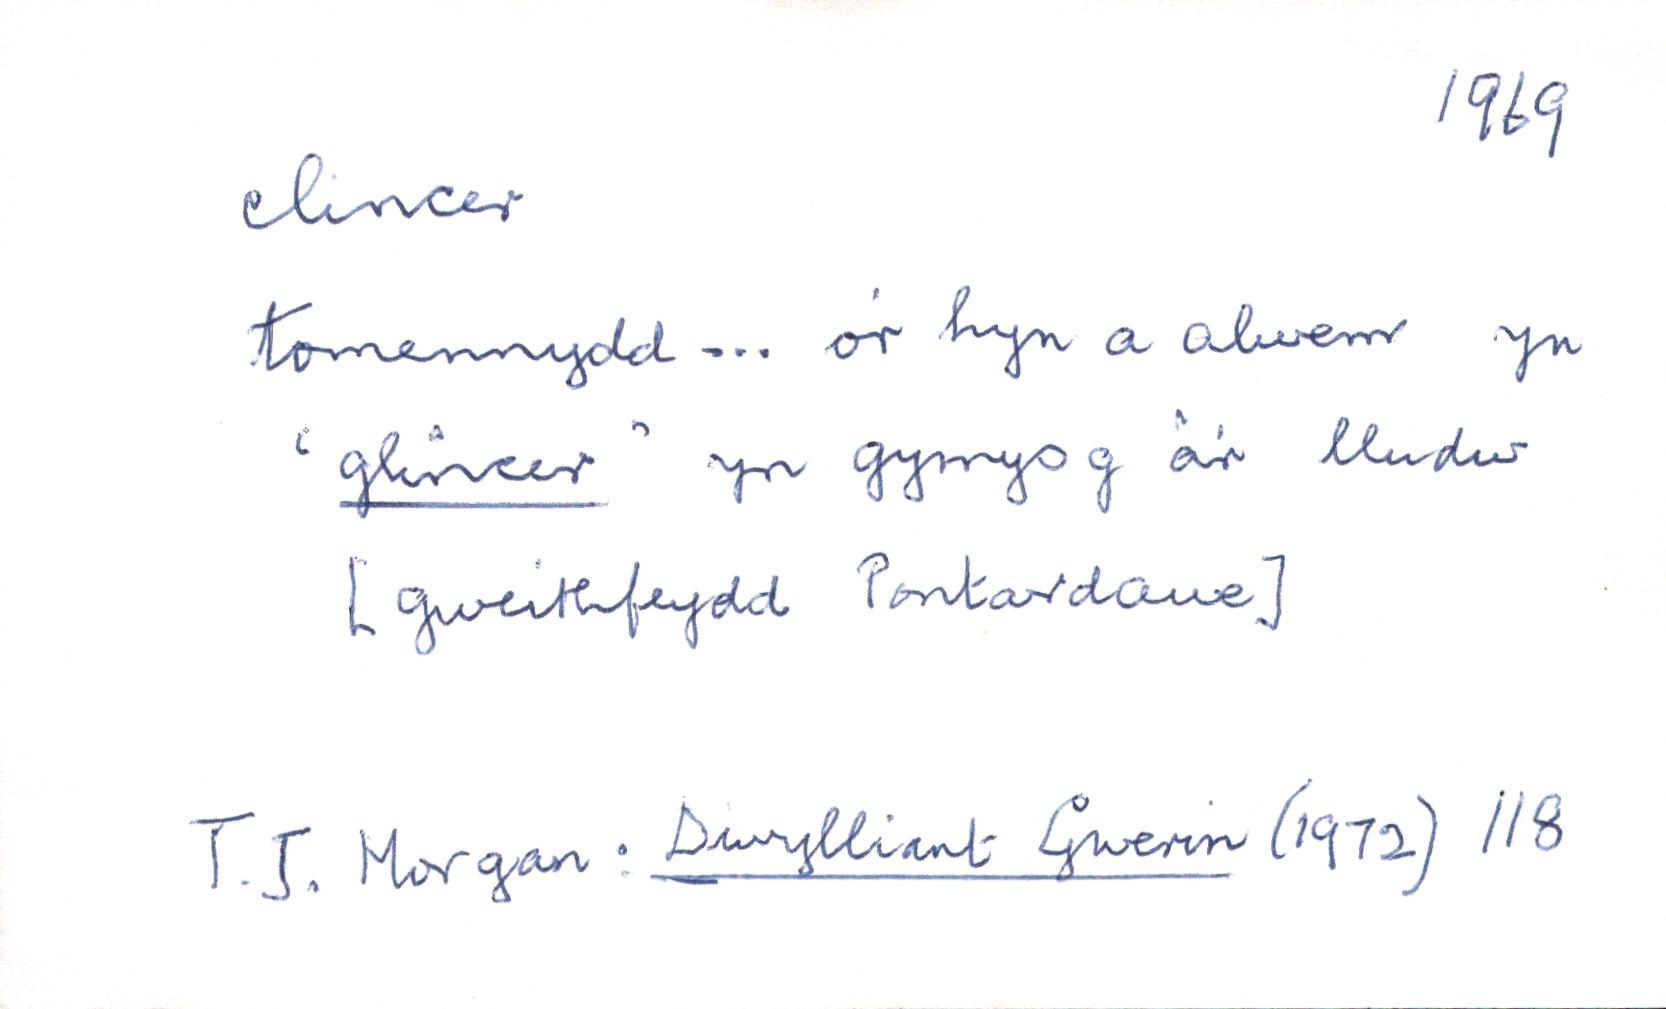 1969
clincer
tomennydd ... o'r hyn a alwem yn
'glincer' yn gymysg â'r lludw
[gweithfeydd Pontardawe]
T.J. Morgan: Diwylliant Gwerin (1972) 118